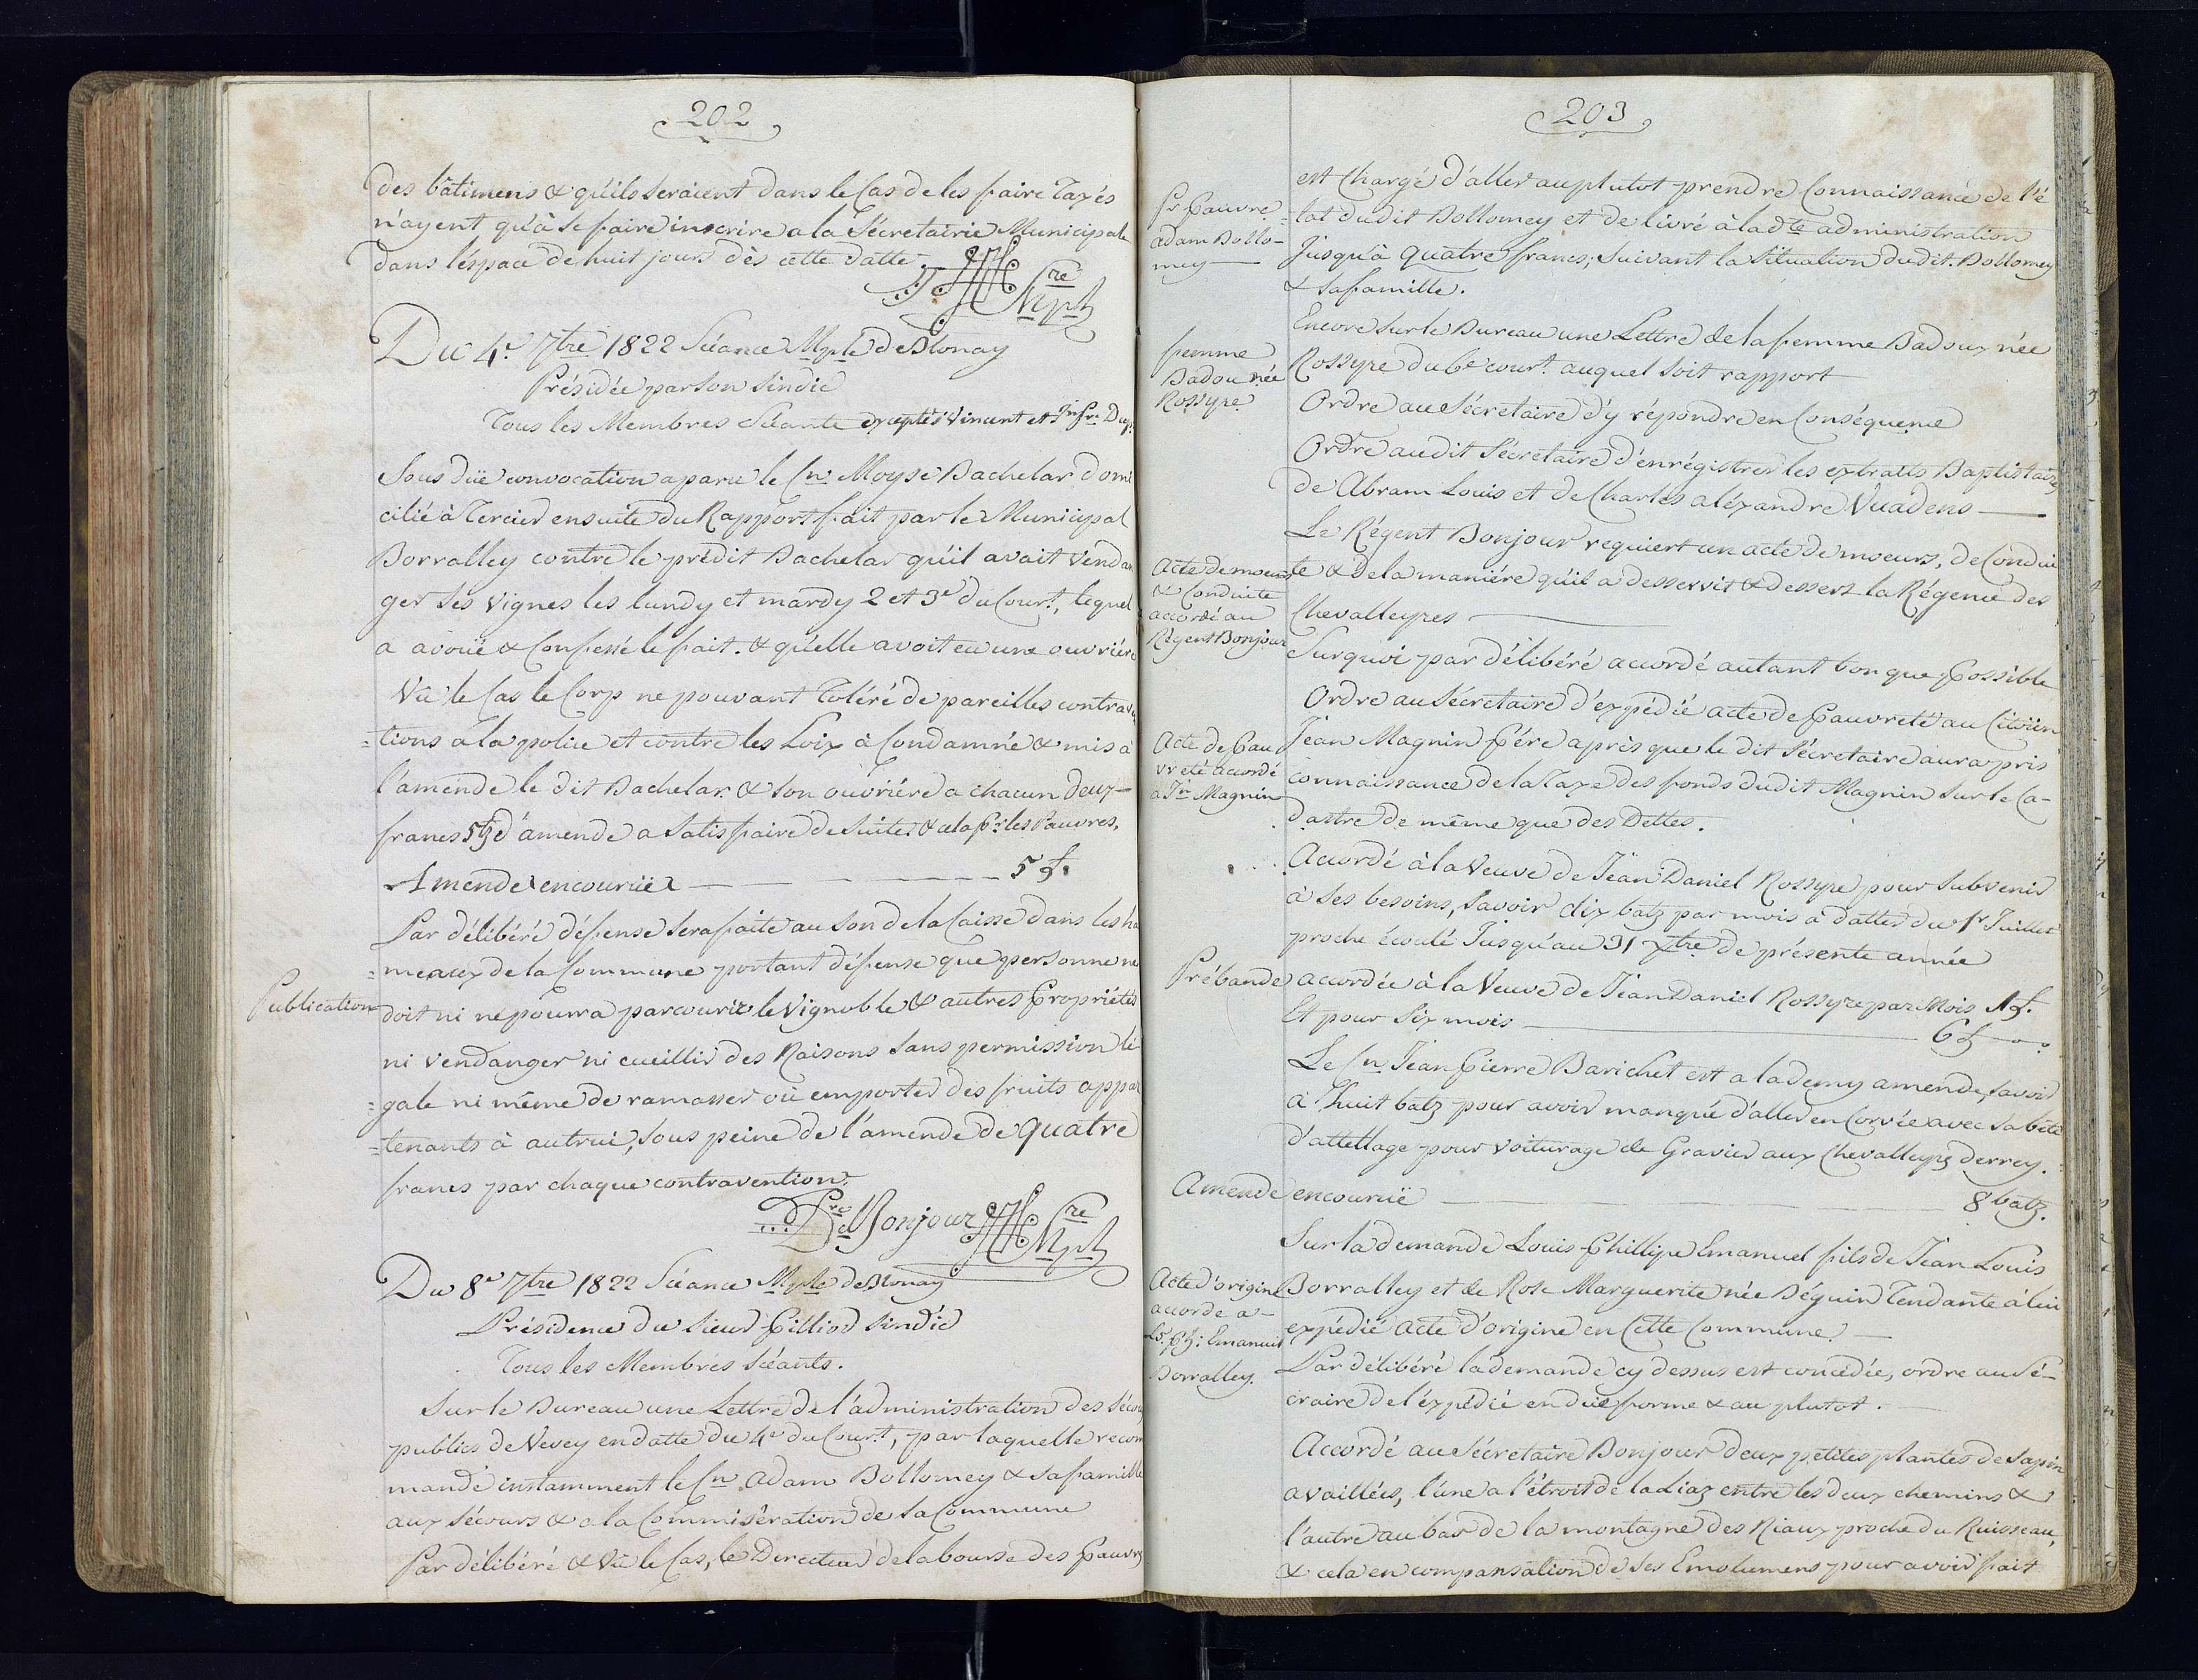 202
des bâtimens & qu'ils seraient dans le Cas de les faire Taxés
n'ayent qu'à se faire inscrire a la Sécretairie Municipale
dans l'espace de huit jours dès cette datte.
Du 4e. 7tre 1822 Séance Mple de Blonay
Présidée par son Sindic
Tous les Membres Séants exceptés Vincent et
Sous düe convocation a paru le Cn. Moyse Bachelar domi
cilié à Tercier ensuite du Rapport fait par le Municipal
Borralley contre le prédit Bachelar qu'il avait vendan
ger ses vignes les lundy et mardy 2 et 3e du Court., lequel
a avoüé & Confessé le fait. & qu'elle avoit eu une ouvriére
Vû le Cas le Corp ne pouvant Toléré de pareilles contraven
=tions à la police et contre les Loix à Condamné & mis à
l'amende le dit Bachelar & son ouvriére a chacun deux
francs 5 d'amende a Satisfaire de Suites & cela pr. les Pauvres.
Amende encouruë — 5 f.
Par délibéré défense sera faite au son de la Caisse dans les ha
=meaux de la Commune portant défense que personne ne
Publication
doit ni ne pourra parcourir le vignoble & autres Propriétés
ni vendanger ni cueillir des Raisons sans permission lé
=gale ni même de ramasser où emporter des fruits appar
=tenants à autrui, sous peine de l'amende de quatre
francs par chaque contravention.
Bonjour
Du 8e 7tre 1822 Séance Mple de Blonay
Présidence du Sieur Pilliod Sindic
Tous les Membres Séants.
Sur le Bureau une Lettre de l'administration des Sécours
publics de Vevey en datte du 4e du Court., par laquelle recom
mande instamment le Cn Adam Bollomey & sa famille
aux sécours & a la Commisération de sa Commune
Par délibéré & vû le Cas, le Directeur de la bourse des Pauvres
203
est Chargé d'aller au plutot prendre Connaissance de l'é
Pr. Pauvre
adam Bollo-
mey
=tat dudit Bollomey et de livré à la dte administration
Jusqu'à quatre francs; Suivant la Situation dudit. Bollomey
& sa famille.
Encore sur le Bureau une Lettre de la femme Badoux née
femme
Badou née
Rossyre
Rossyre du 6e court. auquel soit rapport
Ordre au Sécretaire d'y répondre en Conséquence
Ordre audit Sécretaire d'enrégistrer les extraits Baptistaires
de Abram Louis et de Charles aléxandre Vuadens
Le Régent Bonjour requiert un acte de moeurs, de Condui
Acte de moeurs
& Conduite
accordé au
Régent Bonjour
te & de la maniére qu'il a desservit & dessert la Régence des
Chevalleyres
Surquoi par délibéré accordé autant bon que Possible
Ordre au Sécretaire d'éxpédié acte de Pauvreté au Citoïen
Acte de Pau
vreté accordé
a Jn Magnin
Jean Magnin Père après que le dit Sécretaire aura pris
connaissance de la Taxe des fonds dudit Magnin sur le Ca-
dastre de même que des Dettes.
Accordé à la Veuve de Jean Daniel Rossyre pour Subvenir
à ses besoins, Savoir dix batz par mois à datter du 1r Juillet
proche écoulé Jusqu'au 31 Xtre de présente année
Prébande accordée à la Veuve de Jean Daniel Rossyre par Mois 1 f.
Et pour Six mois — 6 f
Le Cn Jean Pierre Barichet est a la demy amende, savoir
à huit batz pour avoir manqué d'aller en Corvée avec sa bête
d'attellage pour voiturage de Gravier aux Chevalleyres derrey.
Amende encouruë — 8 batz.
Sur la demande Louis Phillipe Emanuel fils de Jean Louis
Acte d'origine
accorde a
Ls. Ph: Emanuel
Borralley.
Borralley et de Rose Marguerite née Déguin Tendante à lui
expédié acte d'origine en Cette Commune
Par délibéré la demande cy dessus est concédée, ordre au Sé-
craire de l'éxpédié en duë forme & au plutot.
Accordé au Sécretaire Bonjour deux petites plantes de Sapin
availlées, l'une a l'étroit de la Liaz entre les deux chemins &
l'autre au bas de la montagne des Riaux proche du Ruisseau,
& cela en compansation de ses Emolumens pour avoir fait